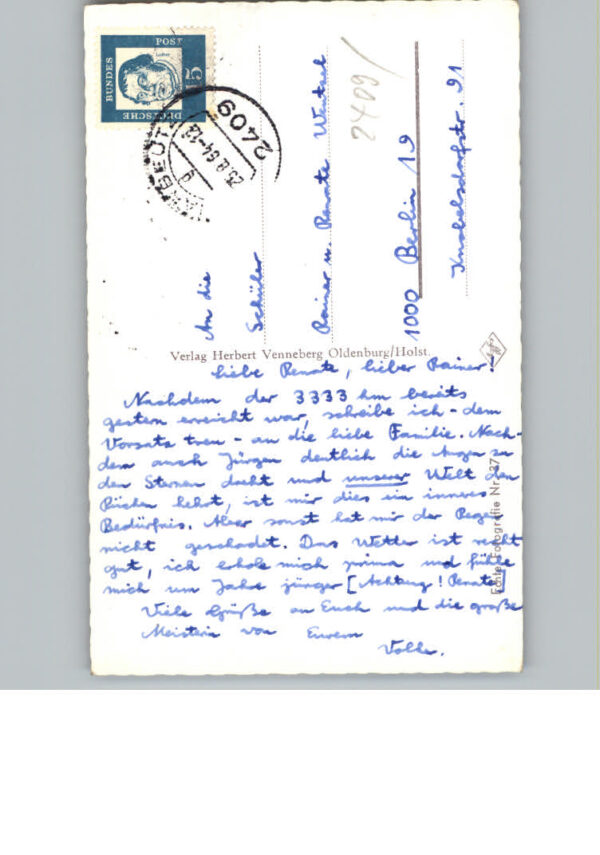 DEUTSCHE
BUNDES
POST
Luther
15
2409
23.8.64-12
g
2409/
An die
Schüler
Rainer u. Renate
1000 Berlin 19
Knobelsdorfstr. 91
Verlag Herbert Venneberg Oldenburg/Holst.
Agfa
Echte Fotografie Nr.
liebe Renate, lieber Rainer!
Nachdem der 3333 km bereits
gestern erreicht war, schreibe ich - dem
Vorsatz treu - an die liebe Familie. Nach-
dem auch Jürgen deutlich die Augen zu
den Sternen dreht und unserer Welt den
Rücken kehrt, ist mir dies ein inneres
Bedürfnis. Aber sonst hat mir der Regen
nicht geschadet. Das Wetter ist recht
gut, ich erhole mich prima und fühle
mich um Jahre jünger [Achtung! Renate]
Viele Grüße an Euch und die große
Meisterin von Eurem